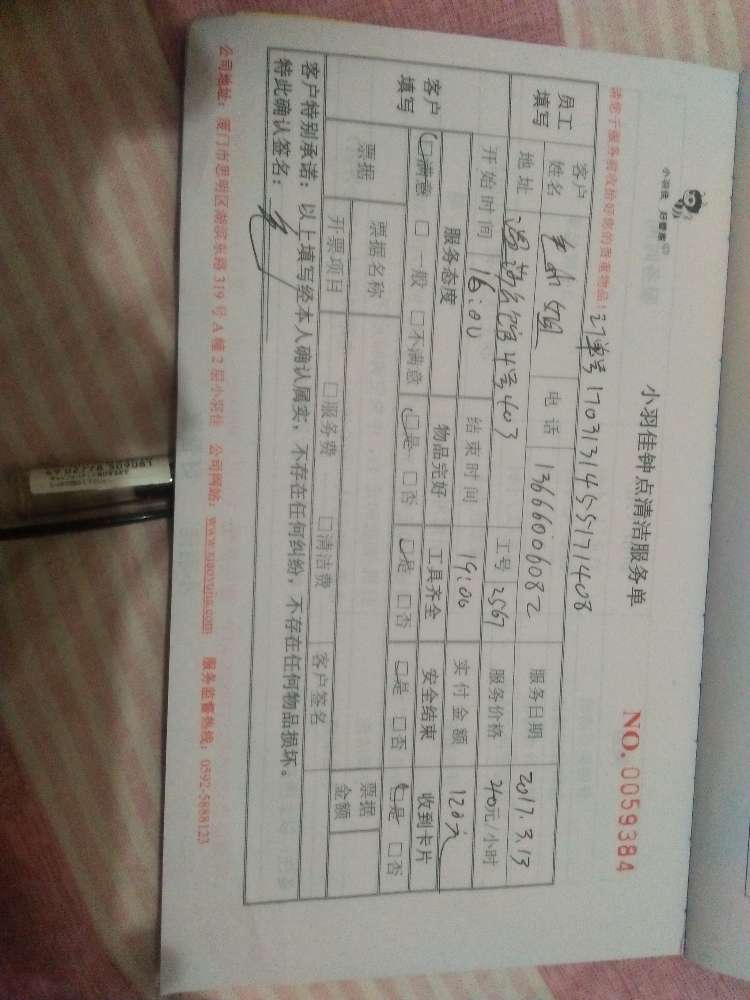 小羽佳 好管家
小羽佳钟点清洁服务单
NO. 0059384
请您于服务前收拾好您的贵重物品！
订单号 1703131455171408
员工填写
客户姓名
电话 13666006082
服务日期 2017.3.13
地址 4号403
工号 2567
服务价格 40元/小时
开始时间 16:00
结束时间 19:00
实付金额 120元
客户填写
服务态度 物品完好 工具齐全 安全结束 收到卡片
□满意 □一般 □不满意 □是 □否 □是 □否 □是 □否 □是 □否
票据 票据名称 客户签名 票据金额
开票项目 □服务费 □清洁费
客户特别承诺：以上填写经本人确认属实，不存在任何纠纷，不存在任何物品损坏。
特此确认签名：
公司地址：厦门市思明区湖滨东路319号A幢2层小羽佳 公司网站：www.xiaoyujia.com 服务监督热线：0592-5888123